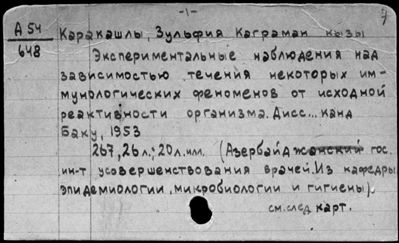 -1-
7
А 54
648
Каракашлы, Зульфия Каграман кызы
Экспериментальные наблюдения над
зависимостью течения некоторых им-
мунологических феноменов от исходной
реактивности организма. Дисс... канд
Баку, 1953
267, 26 л.; 20 л. илл. (Азербайджанский гос.
ин-т усовершенствования врачей. Из кафедры
эпидемиологии, микробиологии и гигиены).
см. след карт.